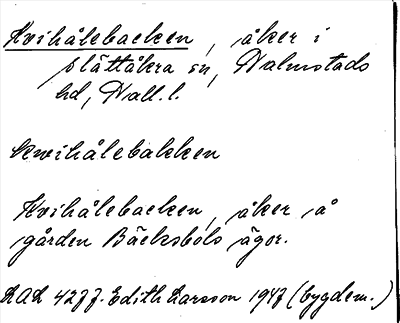 Kvihålebacken, åker i
slättåkra sn, Halmstads
hd, Hall. l.
kwihålebakken
Kvihålebacken, åker å
gården Bäcksbols ägor.
LAL 4277. Edith Larsson 1947 (bygdem.)